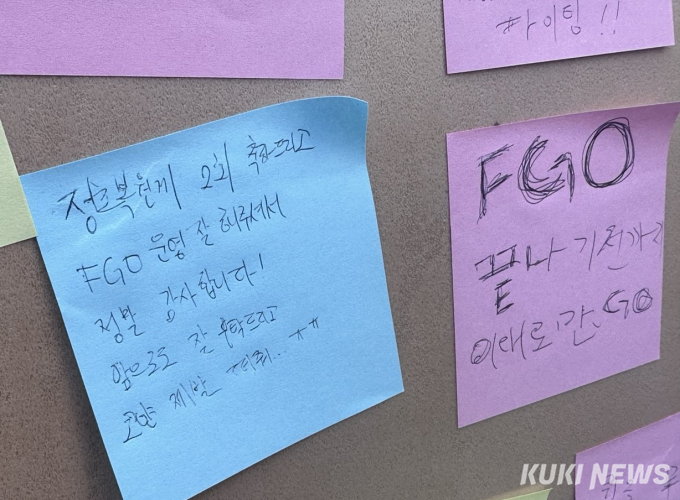 파이팅!!
2회 축하드리고
FGO 운영 잘 해주셔서
정말 감사합니다!
앞으로도 잘 부탁드리고
제발 ㅠㅠ
FGO
끝나
이대로 간.GO
KUKI NEWS